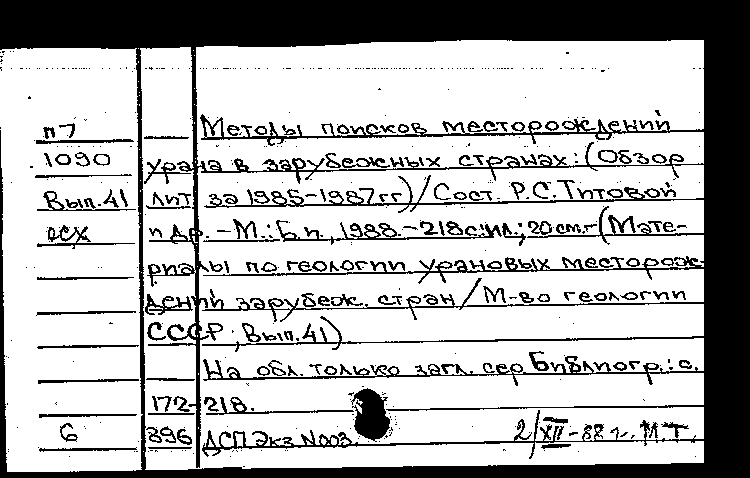 п7 Методы поисков месторождений
1090 урана в зарубежных странах: (Обзор
Вып.41 лит. за 1985-1987гг)/Сост. Р.С.Титовой
осх и др. – М.: Б.и., 1988. – 218с.:ил.; 20см.- (Мате-
риалы по геологии урановых месторож-
дений зарубеж. стран/М-во геологии
СССР; Вып.41).
На обл. только загл. сер. Библиогр.: с.
172-218.
6 896 ДСП Экз N003. 2/XII-88 г. М.Т.